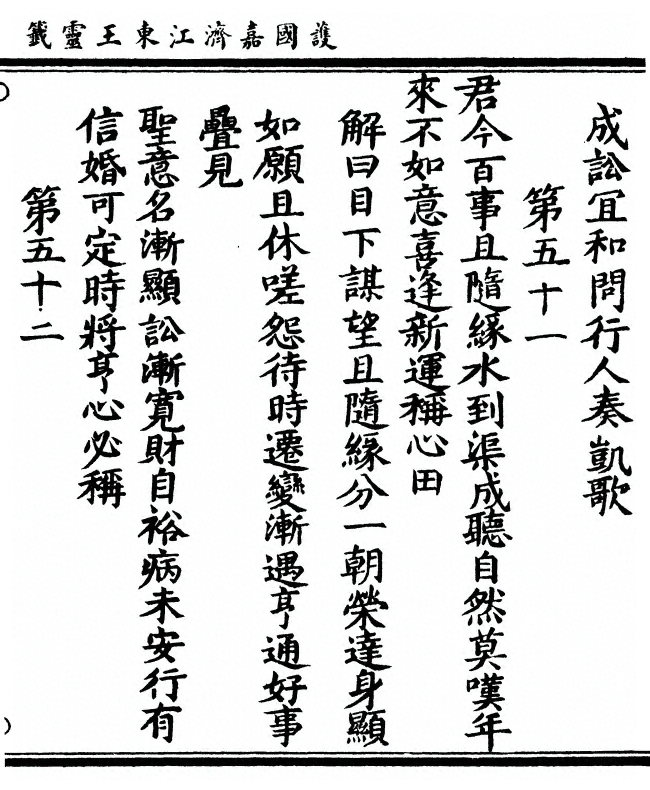 護國嘉濟江東王靈籤
成訟宜和問行人奏凱歌
第五十一
君今百事且隨緣水到渠成聽自然莫嘆年
來不如意喜逢新運稱心田
解曰目下謀望且隨緣分一朝榮達身顯
如願且休嗟怨待時遷變漸遇亨通好事
疊見
聖意名漸顯訟漸寬財自裕病未安行有
信婚可定時將亨心必稱
第五十二